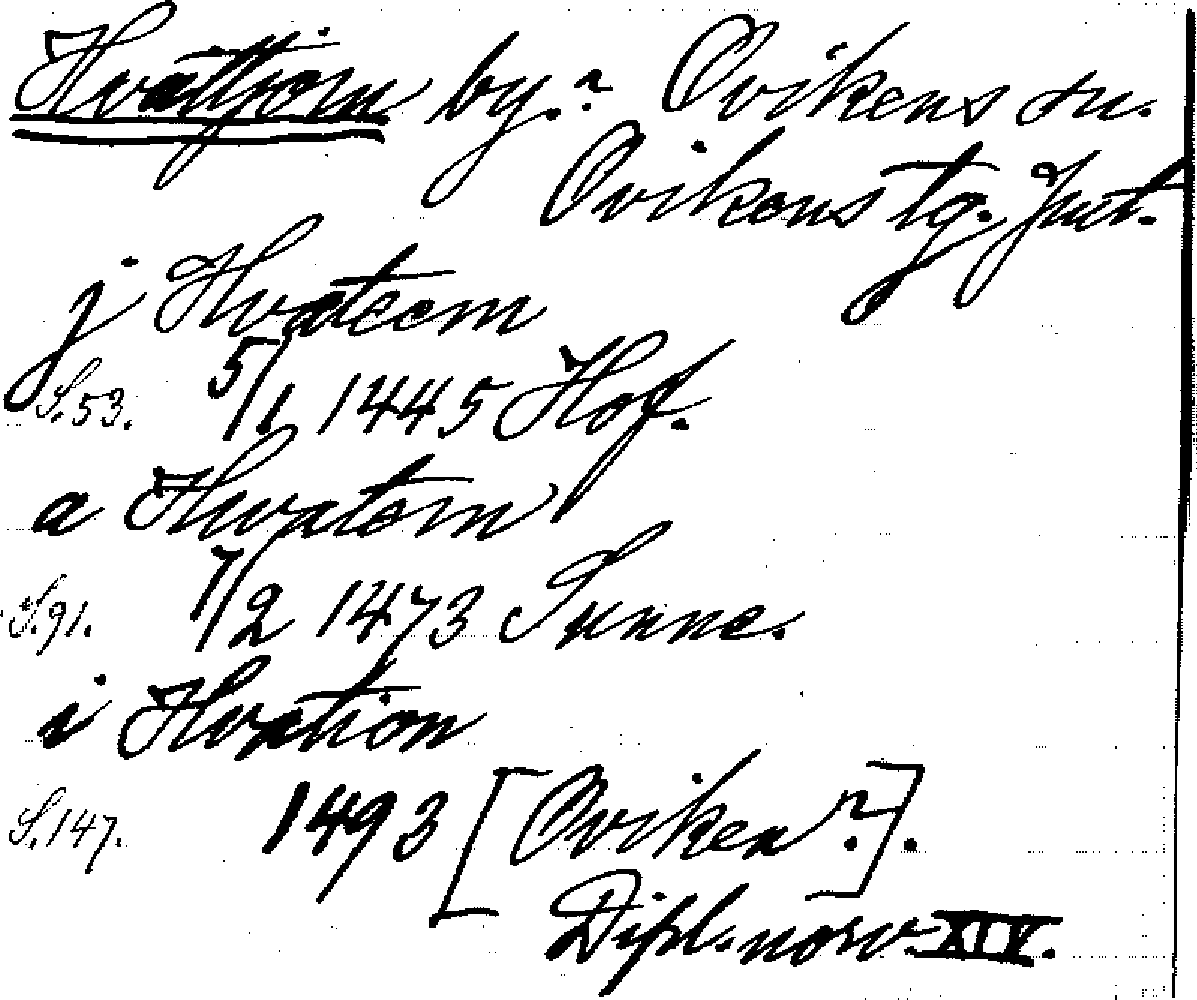 Hvattjom by.? Ovikens sn.
Ovikens tg. Jmt.
j Hwateem
S.53. 5/1 1445 Hof.
a Hwatem
S.91. 7/2 1473 Sunne.
i Hvation
S.147. 1493 [Oviken?].
Dipl. norv. XIV.